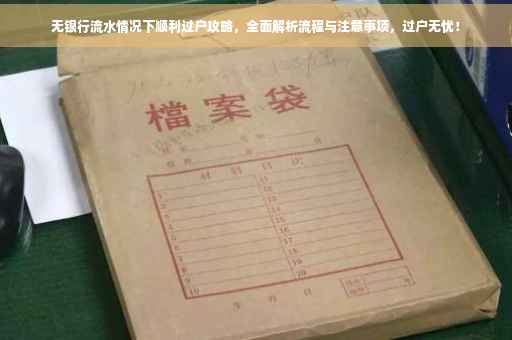 无银行流水情况下顺利过户攻略，全面解析流程与注意事项，过户无忧！
檔案袋
材料目次
1 11
2 12
3 13
4 14
5 15
6 16
7 17
8 18
9 19
10 20
年 月 日